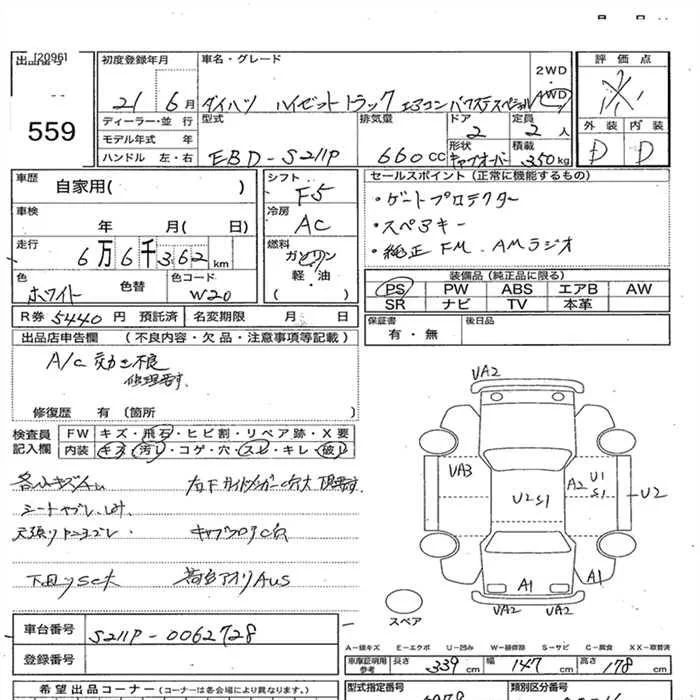 [2096]
出品番号
559
初度登録年月
21 6月
ディーラー・並 行
モデル年式 年
ハンドル 左・右
車名・グレード
ダイハツ ハイゼットトラック エアコン パワステスペシャル
2WD・4WD
型式
EBD-S211P
排気量
660cc
ドア
2
定員
2人
形状
キャブオーバー
積載
350kg
評価点
外装 内装
D D
車歴
自家用( )
車検
年 月( 日)
走行
6万6千362km
色
ホワイト
色替
色コード
W20
シフト
F5
冷房
AC
燃料
ガソリン
軽・油
( )
セールスポイント(正常に機能するもの)
・ゲートプロテクター
・スペアキー
・純正FM、AMラジオ
装備品(純正品に限る)
PS PW ABS エアB AW
SR ナビ TV 本革
保証書
有・無
後日品
R券 5440円 預託済 名変期限 月 日
出品店申告欄 (不良内容・欠品・注意事項等記載)
A/C 効き不良
修理要す
修復歴 有 (箇所 )
検査員
記入欄
FW キズ・飛石・ヒビ割・リペア跡・X要
内装 キズ・汚れ・コゲ・穴・スレ・キレ・破れ
シートヤブレ
下回りSC大
荷台アオリAUS
VA2
VA3
U2S1
A2
U1
S1
U2
A1
A1
VA2 VA2
スペア
車台番号
S211P-0062728
登録番号
A-線キズ E-エクボ U-凹み W-補修跡 S-サビ C-腐食 XX-取替済
車庫証明用
参考
長さ 339cm 幅 147cm 高さ 178cm
希望出品コーナー(コーナーは各会場により異なります)
型式指定番号
類別区分番号